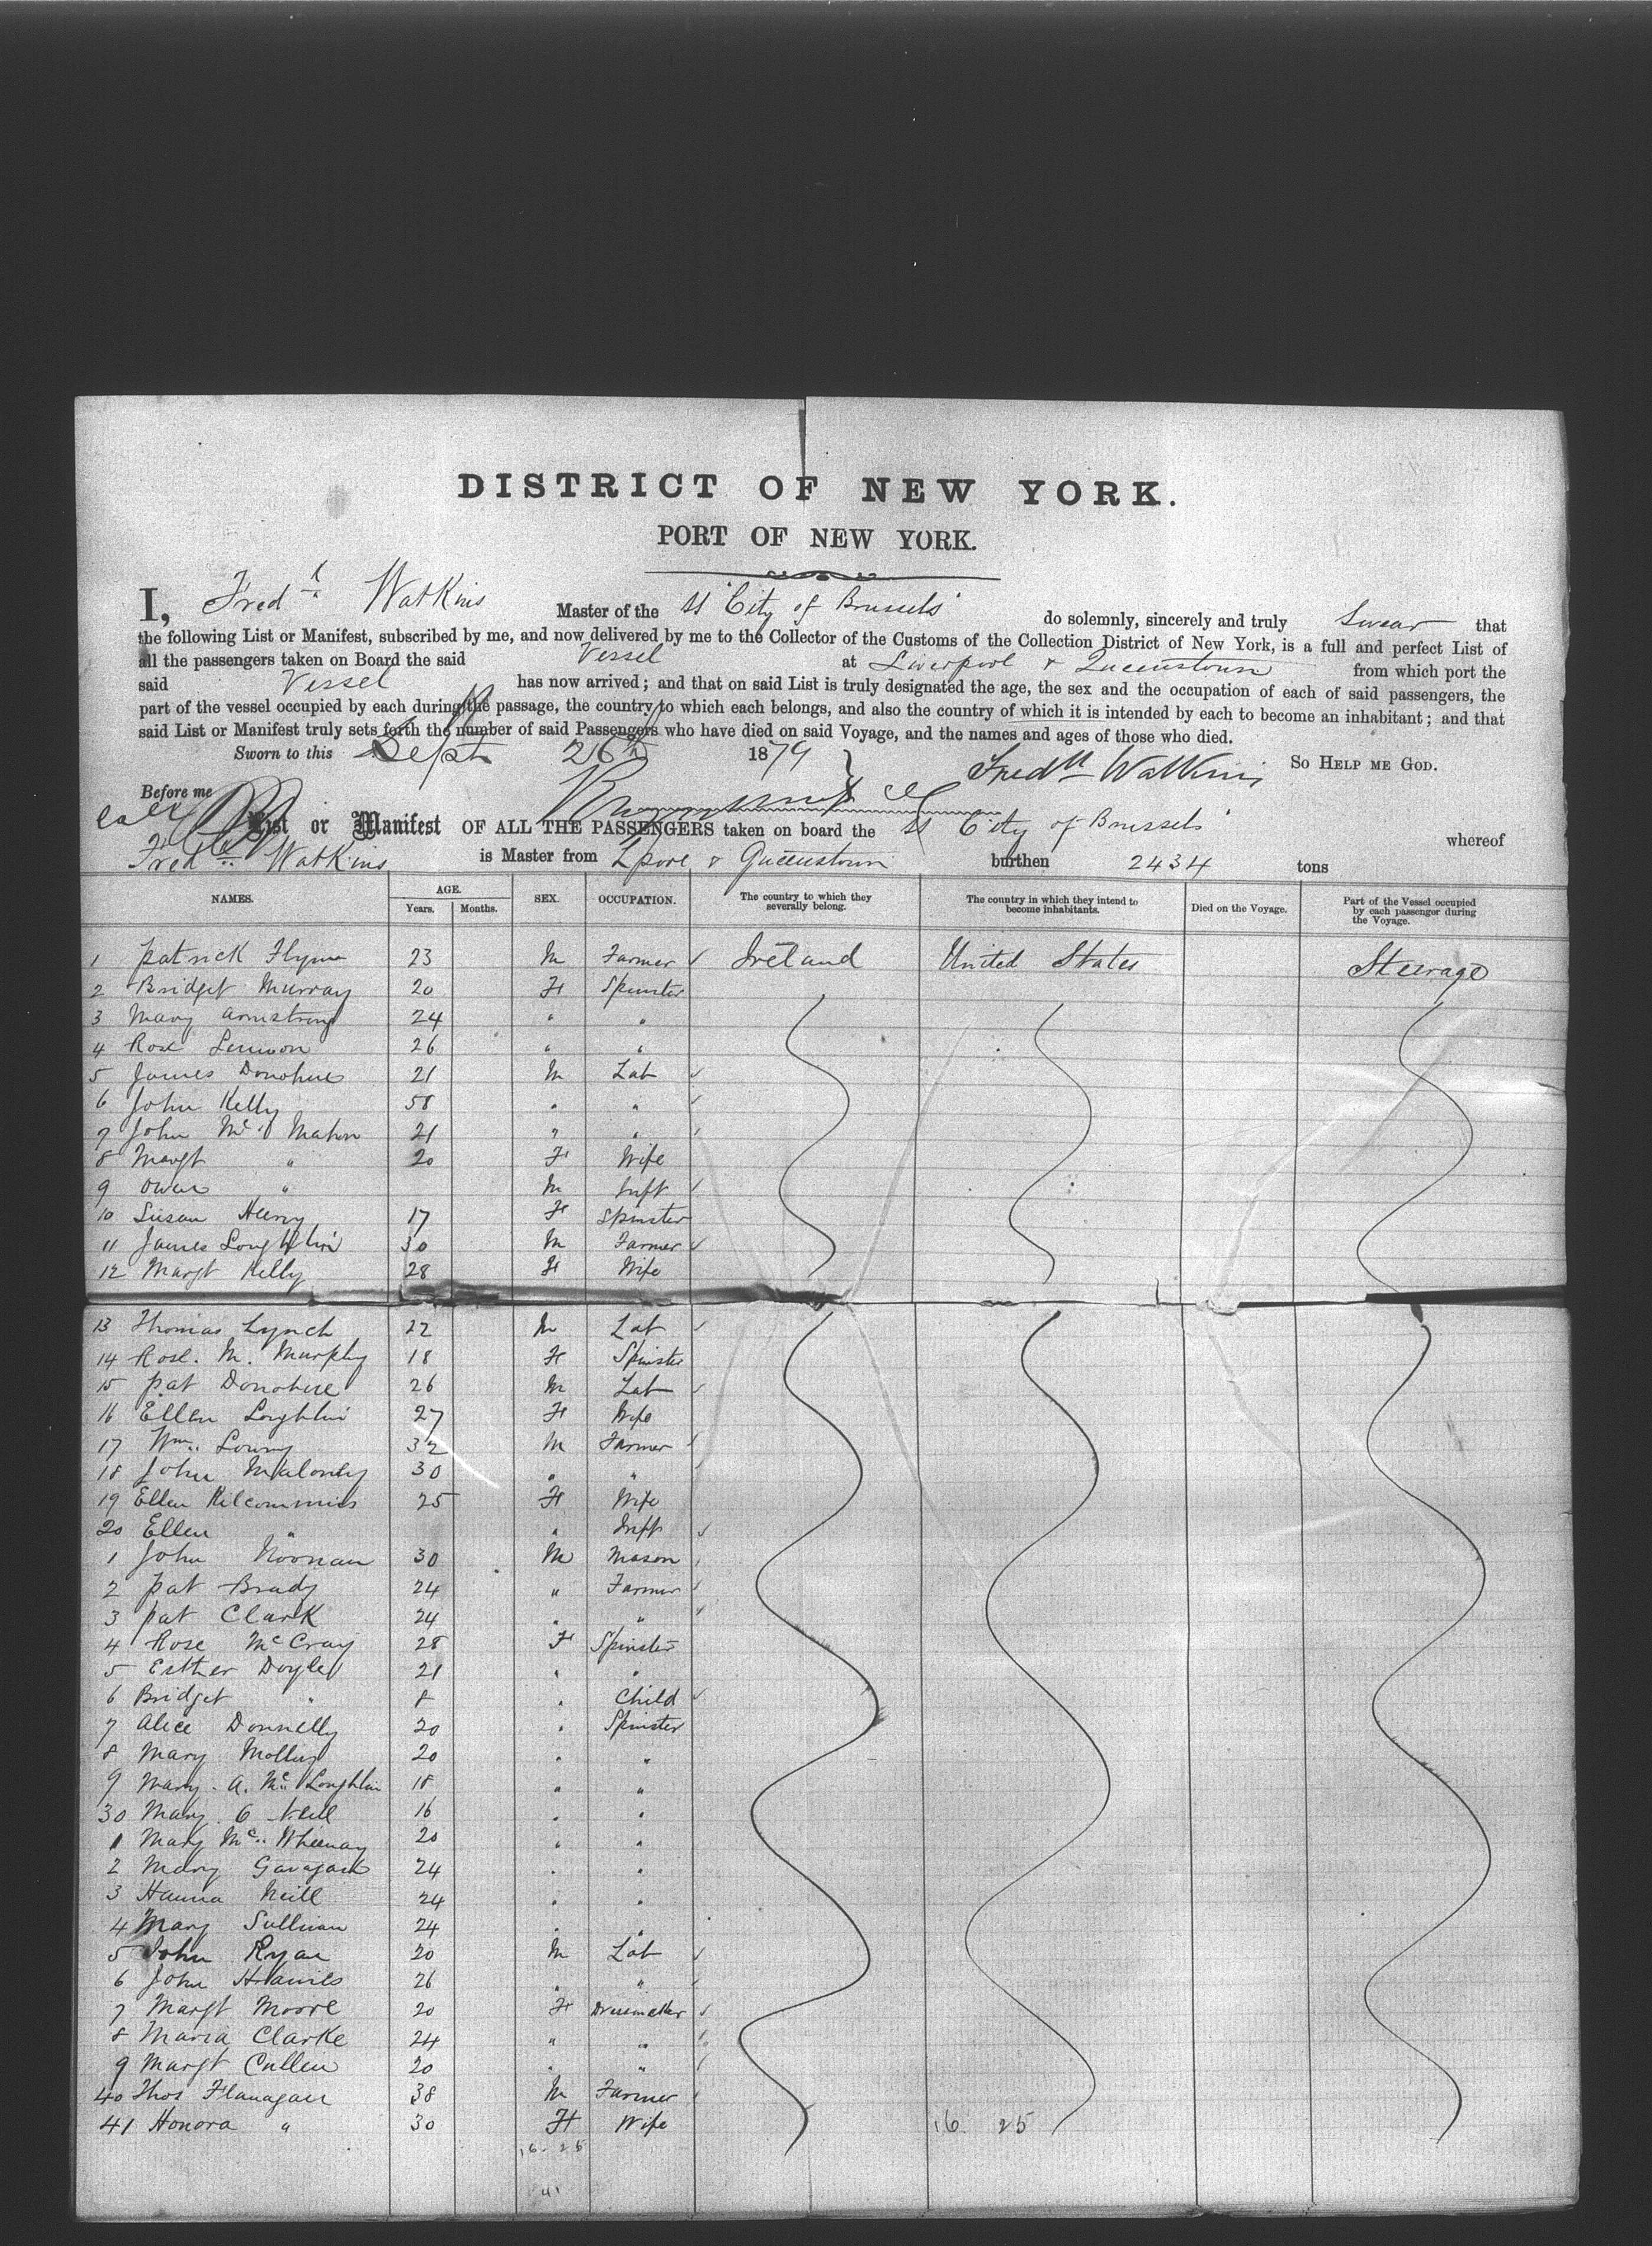 DISTRICT OF NEW YORK.
PORT OF NEW YORK.
I, Fredk Watkins Master of the SS "City of Brussels" do solemnly, sincerely and truly Swear that
the following List or Manifest, subscribed by me, and now delivered by me to the Collector of the Customs of the Collection District of New York, is a full and perfect List of
all the passengers taken on Board the said Vessel at Liverpool & Queenstown from which port the
said Vessel has now arrived; and that on said List is truly designated the age, the sex and the occupation of each of said passengers, the
part of the vessel occupied by each during the passage, the country to which each belongs, and also the country of which it is intended by each to become an inhabitant; and that
said List or Manifest truly sets forth the number of said Passengers who have died on said Voyage, and the names and ages of those who died.
Sworn to this Sept 26th 1879 Fredk Watkins So HELP ME GOD.
Before me
List or Manifest OF ALL THE PASSENGERS taken on board the SS City of Brussels whereof
Fredk Watkins is Master from Lpool & Queenstown burthen 2434 tons
NAMES. AGE. Years. Months. SEX. OCCUPATION. The country to which they severally belong. The country in which they intend to become inhabitants. Died on the Voyage. Part of the Vessel occupied by each passenger during the Voyage.
1 Patrick Flynn 23 M Farmer Ireland United States Steerage
2 Bridget Murray 20 F Spinster
3 Mary Armstrong 24 " "
4 Rose Lennon 26 " "
5 James Donohue 21 M Lab
6 John Kelly 58 " "
7 John Mc Mahon 21 " "
8 Margt " 20 F Wife
9 Owen " M Inft
10 Susan Henry 17 F Spinster
11 James Loughlin 30 M Farmer
12 Margt Kelly 28 F Wife
13 Thomas Lynch 22 M Lab
14 Rose. M. Murphy 18 F Spinster
15 Pat Donohue 26 M Lab
16 Ellen Loughlin 27 F Wife
17 Wm. Lowry 32 M Farmer
18 John Maloney 30 " "
19 Ellen Kilcommins 25 F Wife
20 Ellen " " Inft
1 John Noonan 30 M Mason
2 Pat Brady 24 " Farmer
3 Pat Clark 24 " "
4 Rose McCray 28 F Spinster
5 Esther Doyle 21 " "
6 Bridget " 8 " Child
7 Alice Donnelly 20 " Spinster
8 Mary Molloy 20 " "
9 Mary. A. Mc Loughlin 18 " "
30 Mary O Neill 16 " "
1 Mary Mc 20 " "
2 Mary 24 " "
3 Hanna Neill 24 " "
4 Mary Sullivan 24 " "
5 John Ryan 20 M Lab
6 John 26 " "
7 Margt Moore 20 F Dressmaker
8 Maria Clarke 24 " "
9 Margt Cullen 20 " "
40 Thos Flanagan 38 M Farmer
41 Honora " 30 F Wife 16 25
16. 25
41